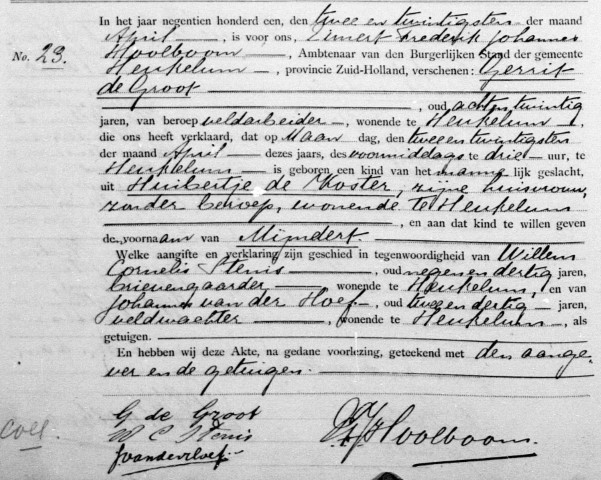 In het jaar negentien honderd een, den twee en twintigsten der maand
April, is voor ons, Frederik Johannes
No. 23. Hoolboom, Ambtenaar van den Burgerlijken Stand der gemeente
Heukelum, provincie Zuid-Holland, verschenen: Gerrit
de Groot
, oud acht en twintig
jaren, van beroep veldarbeider, wonende te Heukelum,
die ons heeft verklaard, dat op Maan dag, den twee en twintigsten
der maand April dezes jaars, des voormiddags te drie uur, te
Heukelum is geboren een kind van het manne lijk geslacht,
uit Huibertje de Koster, zijne huisvrouw,
zonder beroep, wonende te Heukelum
, en aan dat kind te willen geven
de voornaam van Mijndert.
Welke aangifte en verklaring zijn geschied in tegenwoordigheid van Willem
Cornelis Stenis, oud negen en dertig jaren,
brievengaarder, wonende te Heukelum, en van
Johannes van der Hoef, oud twee en dertig jaren,
veldwachter, wonende te Heukelum, als
getuigen.
En hebben wij deze Akte, na gedane voorlezing, geteekend met den aange-
ver en de getuigen.
G de Groot
W C Stenis
J van der Hoef
Hoolboom.
Coll.